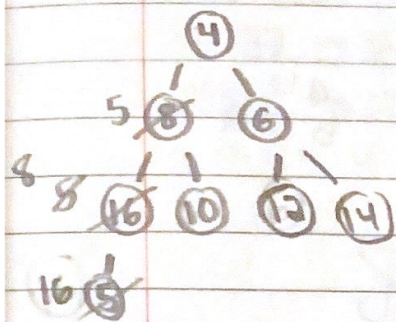 4
5 8 6
8 8 16 10 12 14
16 5